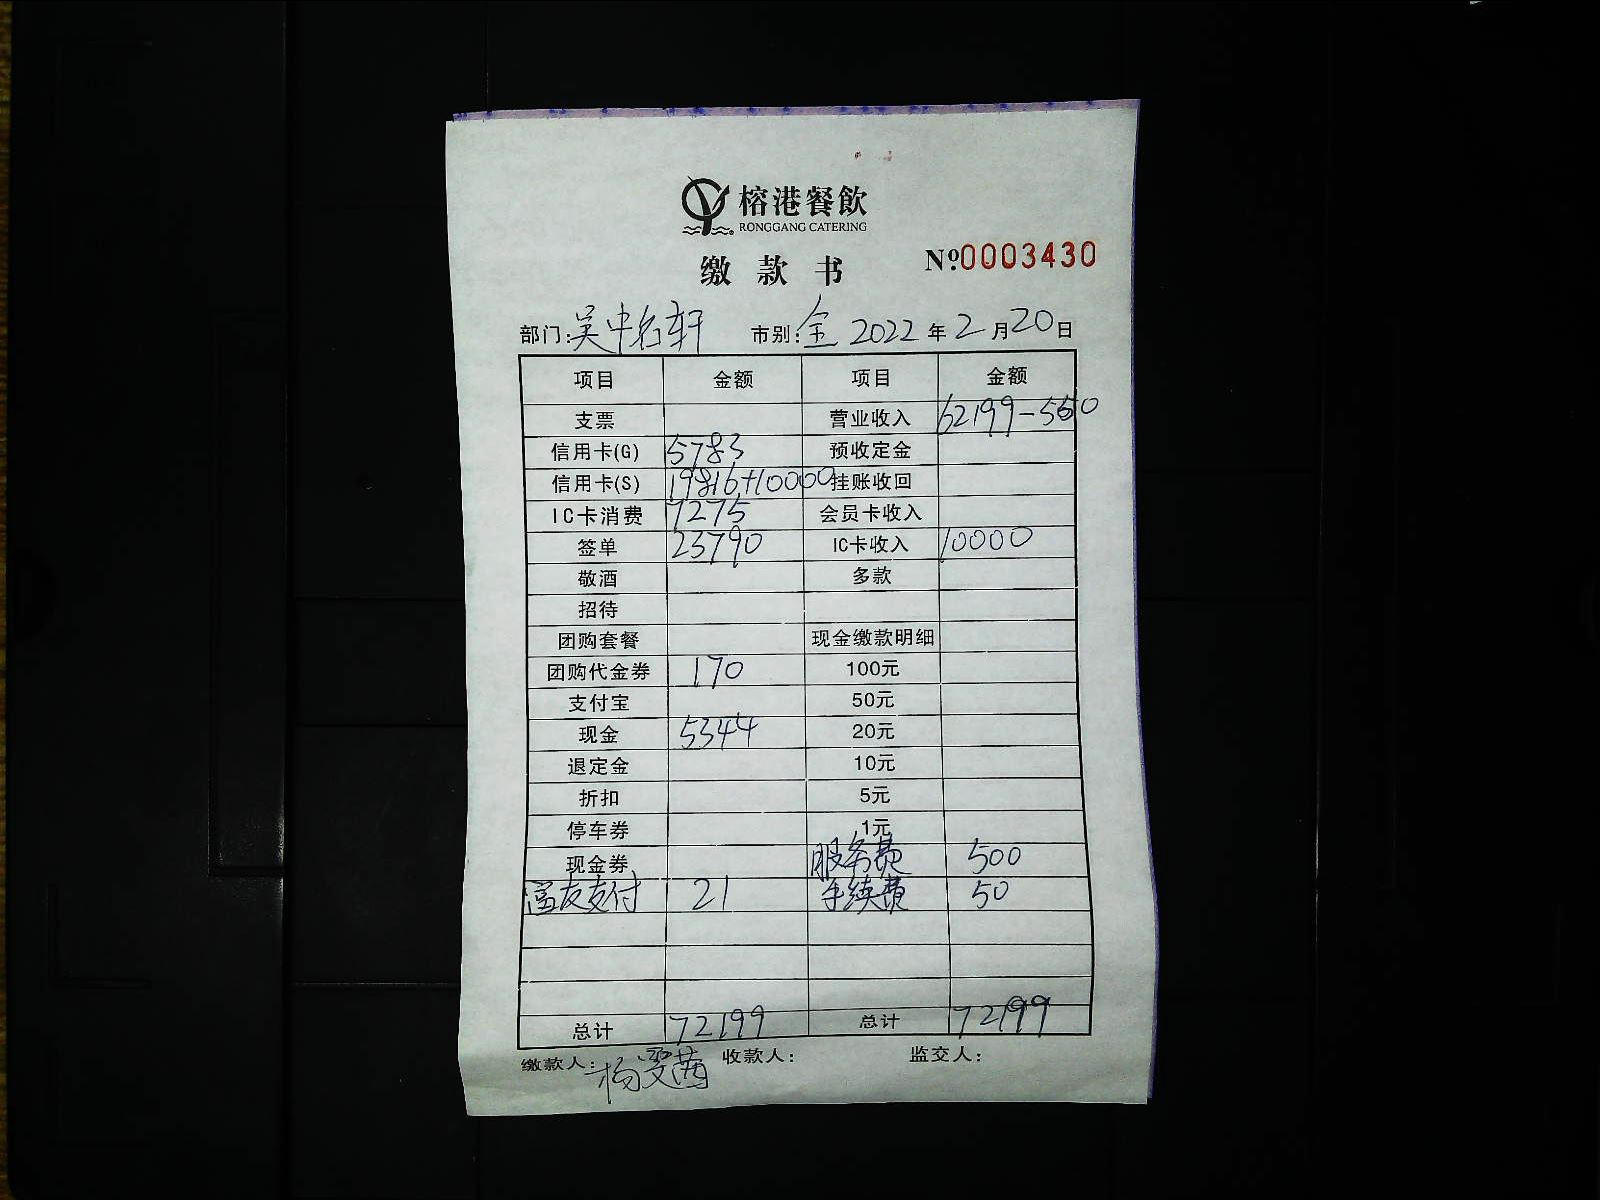 榕港餐飲
RONGGANG CATERING
缴款书 №0003430
部门：吴中名轩 市别：全 2022年2月20日
项目 金额 项目 金额
支票 营业收入 62199-550
信用卡(G) 5783 预收定金
信用卡(S) 19816+10000 挂账收回
IC卡消费 7275 会员卡收入
签单 23790 IC卡收入 10000
敬酒 多款
招待
团购套餐 现金缴款明细
团购代金券 170 100元
支付宝 50元
现金 5344 20元
退定金 10元
折扣 5元
停车券 1元
现金券 服务费 500
富友支付 21 手续费 50
总计 72199 总计 72199
缴款人：杨雯茜 收款人： 监交人：